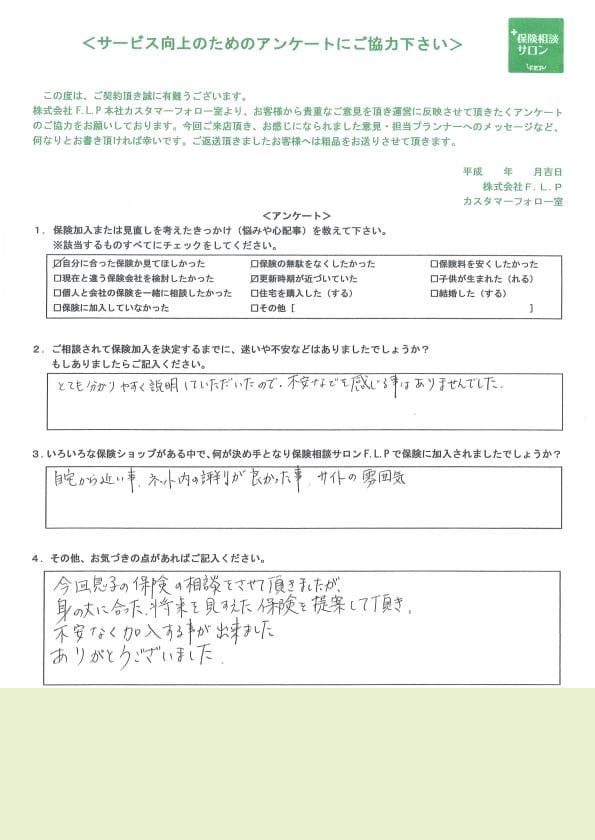 ＜サービス向上のためのアンケートにご協力下さい＞
保険相談
サロン
この度は、ご契約頂き誠に有難うございます。
株式会社Ｆ.Ｌ.Ｐ本社カスタマーフォロー室より、お客様から貴重なご意見を頂き運営に反映させて頂きたくアンケート
のご協力をお願いしております。今回ご来店頂き、お感じになられました意見・担当プランナーへのメッセージなど、
何なりとお書き頂ければ幸いです。ご返送頂きましたお客様へは粗品をお送りさせて頂きます。
平成　　年　　月吉日
株式会社Ｆ.Ｌ.Ｐ
カスタマーフォロー室
＜アンケート＞
１．保険加入または見直しを考えたきっかけ（悩みや心配事）を教えて下さい。
※該当するものすべてにチェックをしてください。
☑自分に合った保険か見てほしかった　□保険の無駄をなくしたかった　□保険料を安くしたかった
□現在と違う保険会社を検討したかった　☑更新時期が近づいていた　□子供が生まれた（れる）
□個人と会社の保険を一緒に相談したかった　□住宅を購入した（する）　□結婚した（する）
□保険に加入していなかった　□その他［　　　　］
２．ご相談されて保険加入を決定するまでに、迷いや不安などはありましたでしょうか？
もしありましたらご記入ください。
とても分かりやすく説明していただいたので、不安などを感じる事はありませんでした。
３．いろいろな保険ショップがある中で、何が決め手となり保険相談サロンＦ.Ｌ.Ｐで保険に加入されましたでしょうか？
自宅から近い事、ネット内の評判が良かった事、サイトの雰囲気
４．その他、お気づきの点があればご記入ください。
今回息子の保険の相談をさせて頂きましたが、
身の丈に合った、将来を見すえた保険を提案して頂き、
不安なく加入する事が出来ました
ありがとうございました。